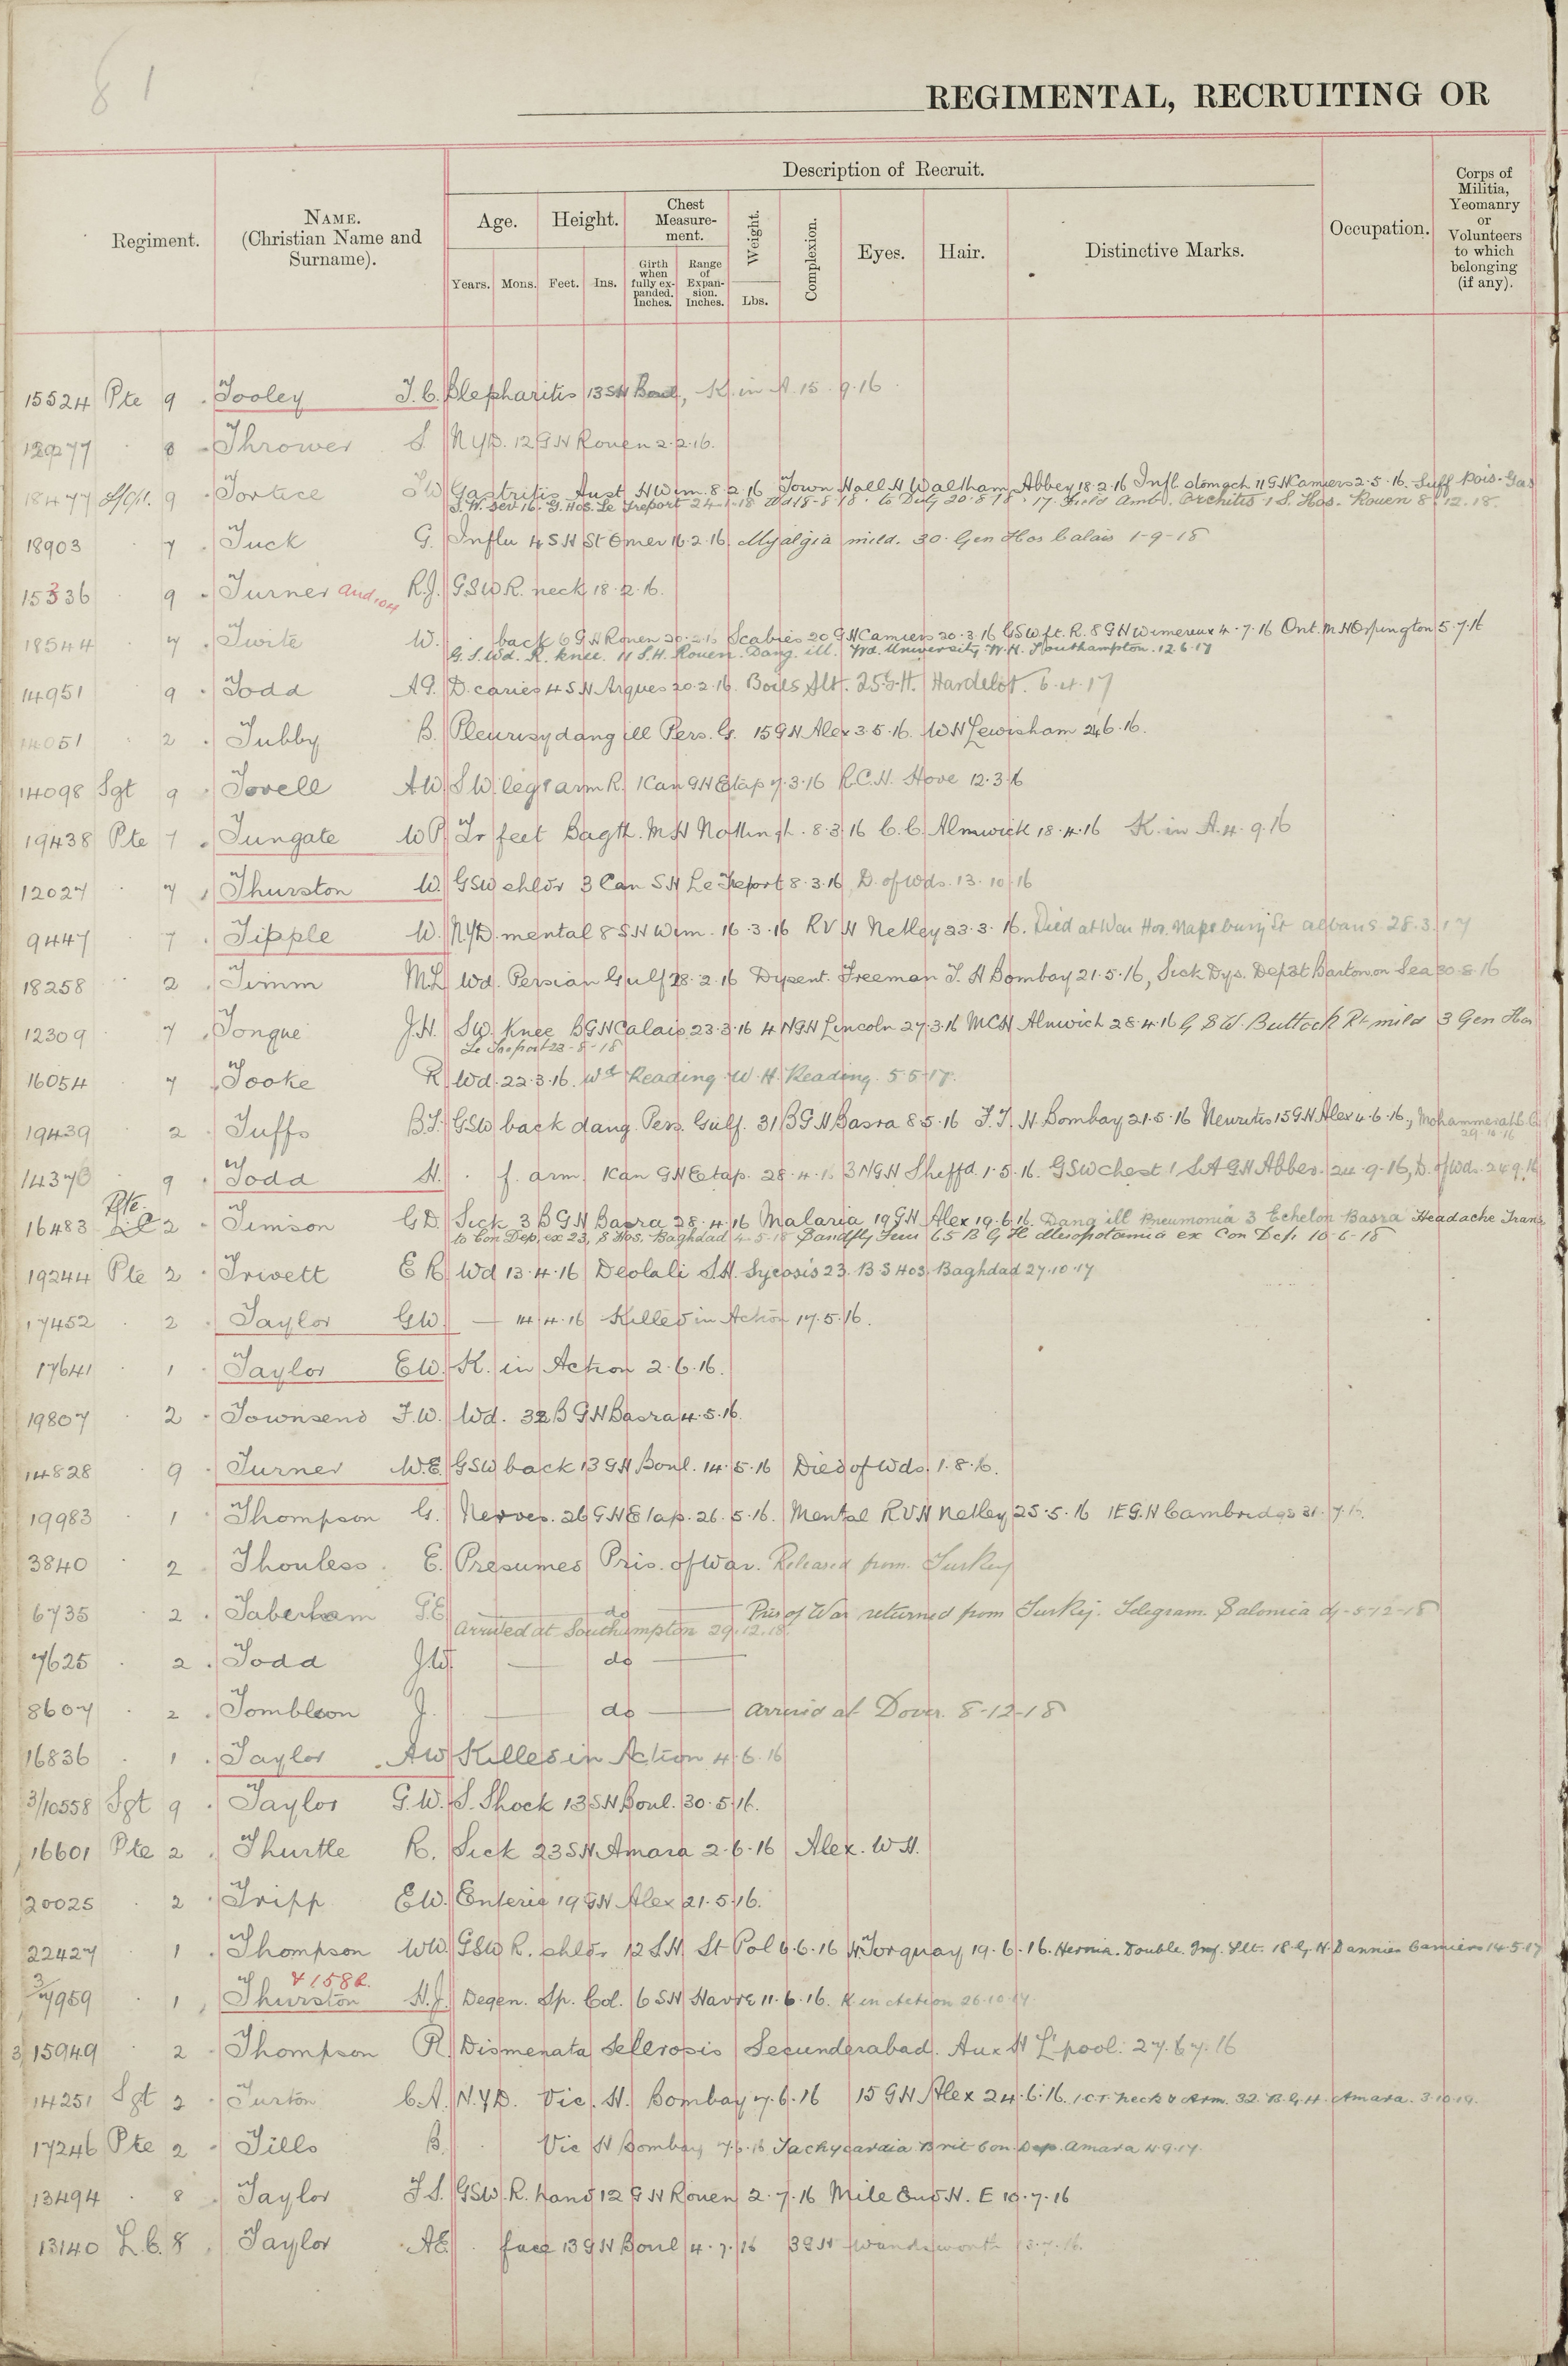 81
REGIMENTAL, RECRUITING OR
Regiment.
NAME.
(Christian Name and
Surname).
Description of Recruit.
Age.
Height.
Chest
Measure-
ment.
Weight.
Complexion.
Eyes.
Hair.
Distinctive Marks.
Occupation.
Corps of
Militia,
Yeomanry
or
Volunteers
to which
belonging
(if any).
Years.
Mons.
Feet.
Ins.
Girth
when
fully ex-
panded.
Inches.
Range
of
Expan-
sion.
Inches.
Lbs.
15524 Pte 9 Tooley J.C. Blepharitis 13 SH Boul, K. in A. 15.9.16
8 Thrower S NYD. 12 GH Rouen 2.2.16.
18477 9 Tortice SW Gastritis Aust H Wim. 8.2.16 Town Hall H Waltham Abbey 18.2.16 Infl. stomach 11 GH Camiers 2.5.16. Suff Pois. Gas
S.W. Sev 16. G. Hos. Le Treport 24-1-18 Wd 18-8-18. to Duty 20.8.18. 17. Field Amb. Orchitis 1 S. Hos. Rouen 8.12.18.
18903 7 Tuck G. Influ 4 SH St Omer 16.2.16. Myalgia mild. 30. Gen Hos Calais 1-9-18
15336 9 Turner R.J. GSW R. neck 18.2.16.
18544 7 Twite W. back 6 GH Rouen 20.2.16 Scabies 20 GH Camiers 20.3.16 GSW ft. R. 8 GH Wimereux 4.7.16 Ont. M H Orpington 5.7.16
G.S.Wd. R. knee. 11 S.H. Rouen. Dang. ill. Trd. University W.H. Southampton. 12.6.17
14951 9 Todd AG. D. caries 4 SH Arques 20.2.16. Boils Slt. 25 G.H. Hardelot. 6.4.17
14051 2 Tubby B. Pleurisy dang ill Pers. G. 15 GH Alex 3.5.16. WH Lewisham 24.6.16.
14098 Sgt 9 Tovell AW SW. leg & arm R. 1 Can GH Etap 7.3.16 R.C.H. Hove 12.3.16
19438 Pte 7 Tungate WP Tr feet Bagth. MH Nottingh. 8.3.16 C.C. Alnwick 18.4.16 K. in A. 4.9.16
12027 7 Thurston W. GSW shldr 3 Can SH Le Treport 8.3.16 D. of Wds. 13.10.16
9447 7 Tipple W. NYD. mental 8 SH Wim. 16.3.16 RVH Netley 23.3.16. Died at War Hos. Napsbury St albans 28.3.17
18258 2 Timm ML Wd. Persian Gulf 28.2.16 Dysent. Freeman T. H Bombay 21.5.16, Sick Dys. Depot Barton on Sea 30.8.16
12309 7 Tongue J.H. SW. Knee BGH Calais 23.3.16 4 NGH Lincoln 27.3.16 MCH Alnwich 28.4.16 G S W. Buttock Rt mild 3 Gen Hos
Le Treport 23-8-18
16054 7 Tooke R Wd. 22.3.16. Wd Reading W.H. Reading. 5.5.17.
19439 2 Tuffs B.S. GSW back dang. Pers. Gulf. 31 BGH Basra 8.5.16 F.T. H. Bombay 21.5.16 Neuritis 15 GH Alex 4.6.16.
9 Todd H. f. arm. 1 Can GH Etap. 28.4.16 3 NGH Sheffd. 1.5.16. GSW chest 1 SA GH Abbev. 24.9.16, D. of Wds. 24.9.16
Pte
16483 2 Timson GD. Sick 3 BGH Basra 28.4.16 Malaria 19 GH Alex 19.6.16. Dang ill Pneumonia 3 Echelon Basra Headache Trans
to Con Dep, ex 23, S Hos. Baghdad 4-5-18 Sandfly Fever 65 B G H Mesopotamia ex Con Dep. 10-6-18
19244 Pte 2 Trivett E R Wd 13.4.16 Deolali S.H. Sycosis 23. B S Hos. Baghdad 27.10.17
17452 2 Taylor GW. — 14.4.16 Killed in Action 17.5.16.
17641 1 Taylor EW. K. in Action 2.6.16.
19807 2 Townsend F.W. Wd. 32 B GH Basra 4.5.16.
14828 9 Turner W.E. GSW back 13 GH Boul. 14.5.16 Died of Wds. 1.8.16.
19983 1 Thompson G. Nerves. 26 GH Etap. 26.5.16. Mental RVH Netley 25.5.16 1E G.H Cambridge 31.7.16.
3840 2 Thouless E. Presumed Pris. of War. Released from Turkey
6735 2 Taberham do Pris of War returned from Turkey. Telegram. Salonica d/- 5-12-18
Arrived at Southampton 29.12.18.
7625 2 Todd J.W. do
8607 2 Tomblson J. do Arrived at Dover. 8-12-18
16836 1 Taylor AW Killed in Action 4.6.16
3/10558 Sgt 9 Taylor G.W. S. Shock 13 SH Boul. 30.5.16.
16601 Pte 2 Thurtle R. Sick 23 SH Amara 2.6.16 Alex. W H.
20025 2 Tripp EW. Enteric 19 GH Alex 21.5.16.
22427 1 Thompson WW. GSW R. shldr. 12 SH St Pol 6.6.16 H Torquay 19.6.16. Hernia. Double. Slt. 18 G H Dannes Camiers 14.5.17
3/7959 1 Thurston H.J. Degen. Sp. Col. 6 SH Havre 11.6.16. K in Action 26.10.17
3/15949 2 Thompson R. Dismenata Sclerosis Secunderabad. Aux H L'pool: 27.6.7.16
14251 Sgt 2 Turton C.A. N.Y.D. Vic. H. Bombay 7.6.16 15 GH Alex 24.6.16. I.C.T. neck & Arm. 32. B.G.H. Amara.
17246 Pte 2 Tills B. Vic H Bombay 7.6.16 Tachycardia Brit Con. Dep. Amara 4.9.17.
13494 8 Taylor F.S. GSW. R. hand 12 GH Rouen 2.7.16 Mile End H. E 10.7.16
13140 L.C. 8 Taylor AE face 13 GH Boul 4.7.16 3 GH Wandsworth